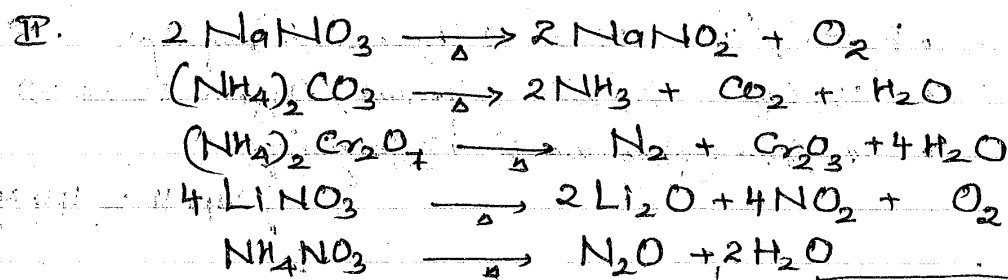 II. 2 NaNO₃ —Δ→ 2 NaNO₂ + O₂
(NH₄)₂ CO₃ —Δ→ 2 NH₃ + CO₂ + H₂O
(NH₄)₂ Cr₂O₇ —Δ→ N₂ + Cr₂O₃ + 4 H₂O
4 LiNO₃ —Δ→ 2 Li₂O + 4 NO₂ + O₂
NH₄NO₃ —Δ→ N₂O + 2 H₂O